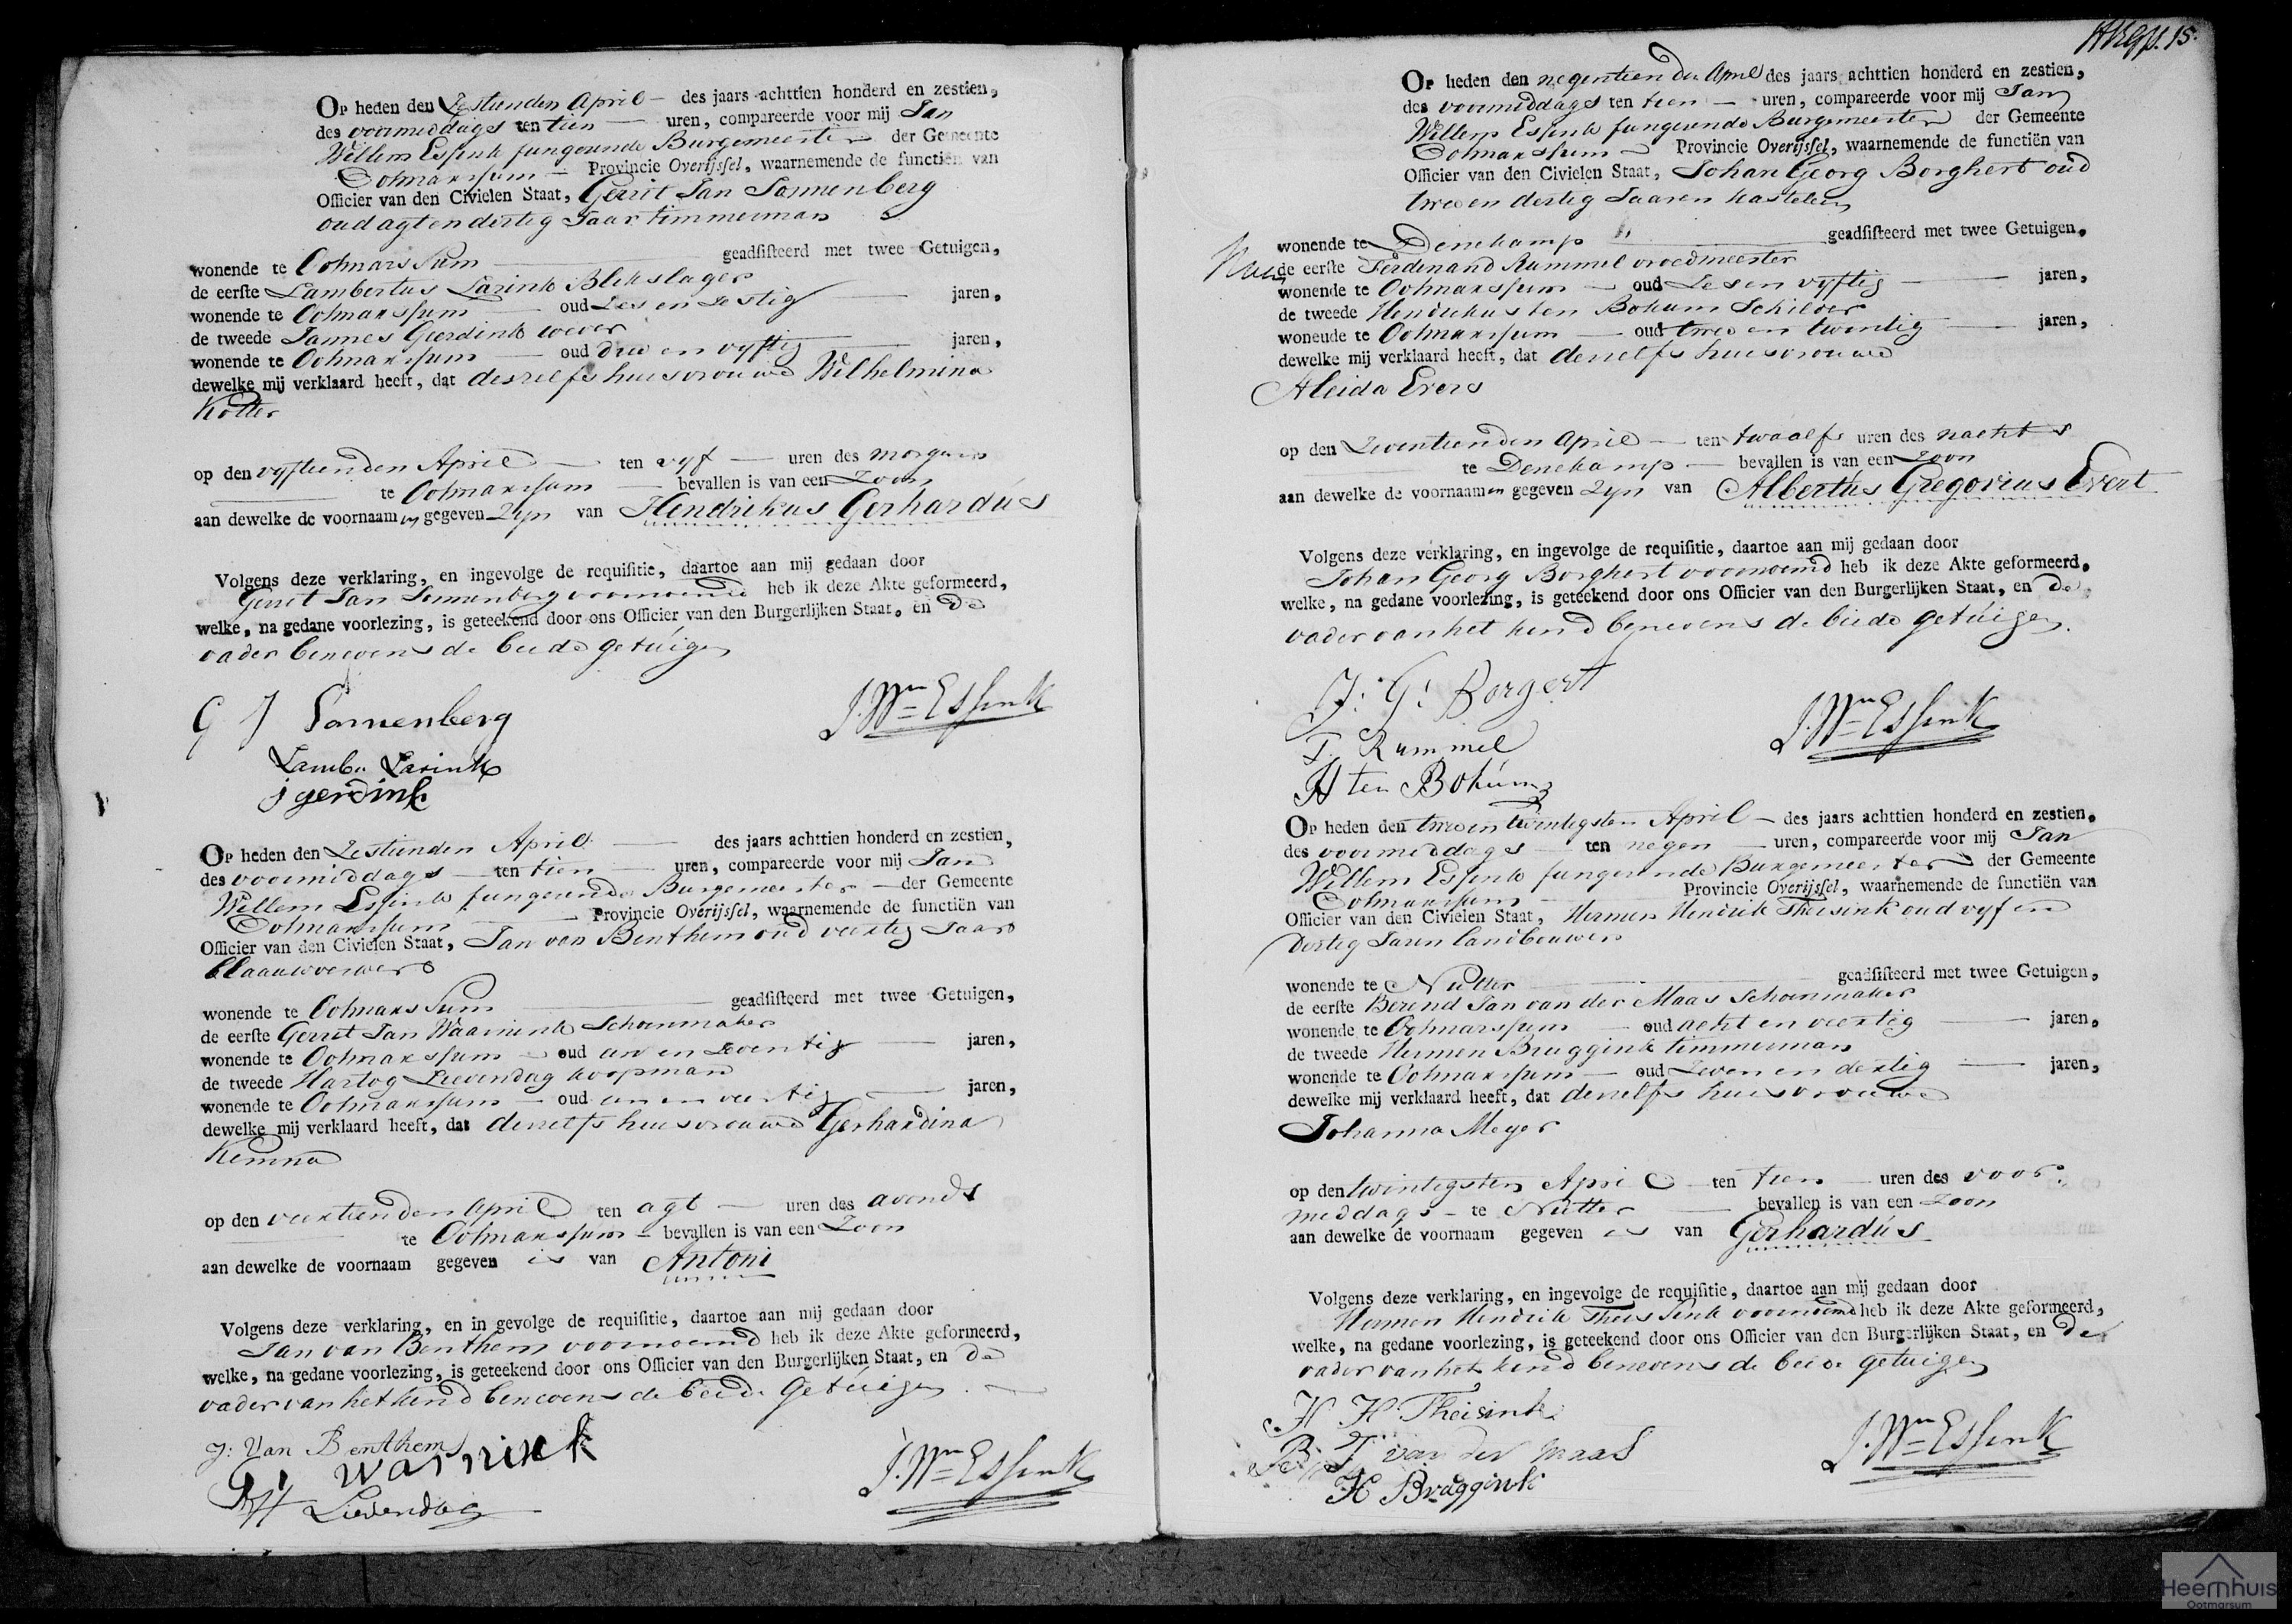 Op heden den Zestienden April des jaars achttien honderd en zestien,
des voormiddags ten tien uren, compareerde voor mij Jan
Willem Essink fungerende Burgemeester der Gemeente
Ootmarssum Provincie Overijssel, waarnemende de functiën van
Officier van den Civielen Staat, Gerrit Jan Sonnenberg
oud agt en dertig Jaar timmerman
wonende te Ootmarssum geadsisteerd met twee Getuigen,
de eerste Lambertus Larink Blikslager
wonende te Ootmarssum oud Zes en Zestig jaren,
de tweede Jannes Geerdink wever
wonende te Ootmarssum oud drie en vyftig jaren,
dewelke mij verklaard heeft, dat deszelfs huisvrouwe Wilhelmina
Kotter
op den vyftienden April ten vyf uren des morgens
te Ootmarssum bevallen is van een Zoon
aan dewelke de voornaamen gegeven zyn van Hendrikus Gerhardús
Volgens deze verklaring, en ingevolge de requisitie, daartoe aan mij gedaan door
Gerrit Jan Sonnenberg voornoemd heb ik deze Akte geformeerd,
welke, na gedane voorlezing, is geteekend door ons Officier van den Burgerlijken Staat, en de
vader benevens de beide getúigen
G J Sonnenberg
J. Wm Essink
Lamb. Larink
j gerdink
Op heden den Zestienden April des jaars achttien honderd en zestien,
des voormiddags ten tien uren, compareerde voor mij Jan
Willem Essink fungerende Burgemeester der Gemeente
Ootmarssum Provincie Overijssel, waarnemende de functiën van
Officier van den Civielen Staat, Jan van Benthem oud veertig Jaar
blaauwverwer
wonende te Ootmarssum geadsisteerd met twee Getuigen,
de eerste Gerrit Jan Waarnink Schoenmaker
wonende te Ootmarssum oud een en Zeventig jaren,
de tweede Hartog Leevendag koopman
wonende te Ootmarssum oud een en veertig jaren,
dewelke mij verklaard heeft, dat deszelfs huisvrouwe Gerhardina
Kemna
op den veertienden April ten agt uren des avonds
te Ootmarssum bevallen is van een Zoon
aan dewelke de voornaam gegeven is van Antoni
Volgens deze verklaring, en in gevolge de requisitie, daartoe aan mij gedaan door
Jan van Benthem voornoemd heb ik deze Akte geformeerd,
welke, na gedane voorlezing, is geteekend door ons Officier van den Burgerlijken Staat, en de
vader van het kind benevens de beide Getúigen
J: Van Benthem
warnink
J. Wm Essink
H Lievendag
15.
Op heden den negentienden April des jaars achttien honderd en zestien,
des voormiddags ten tien uren, compareerde voor mij Jan
Willem Essink fungerende Burgemeester der Gemeente
Ootmarssum Provincie Overijssel, waarnemende de functiën van
Officier van den Civielen Staat, Johan Georg Borghert oud
twee en dertig Jaaren kastelein
wonende te Denekamp geadsisteerd met twee Getuigen,
de eerste Ferdinand Rummel vroedmeester
wonende te Ootmarssum oud Zes en vyftig jaren,
de tweede Hendrikus ten Bokum Schilder
wonende te Ootmarssum oud twee en twentig jaren,
dewelke mij verklaard heeft, dat deszelfs huisvrouwe
Aleida Evers
op den Zeventienden April ten twaalf uren des nachts
te Denekamp bevallen is van een Zoon
aan dewelke de voornaamen gegeven zyn van Albertus Gregorius Evert
Volgens deze verklaring, en ingevolge de requisitie, daartoe aan mij gedaan door
Johan Georg Borghert voornoemd heb ik deze Akte geformeerd,
welke, na gedane voorlezing, is geteekend door ons Officier van den Burgerlijken Staat, en de
vader van het kind benevens de beide getúigen.
J: G: Borgert
J. Wm Essink
F. Rummel
H ten Bokúm
Op heden den twee en twintigsten April des jaars achttien honderd en zestien,
des voormeddags ten negen uren, compareerde voor mij Jan
Willem Essink fungerende Burgemeester der Gemeente
Ootmarssum Provincie Overijssel, waarnemende de functiën van
Officier van den Civielen Staat, Hermen Hendrik Theisink oud vyf en
Dertig Jaren landbouwer
wonende te Nutter geadsisteerd met twee Getuigen,
de eerste Berend Jan van der Maas Schoenmaker
wonende te Ootmarssum oud acht en veertig jaren,
de tweede Hermen Bruggink timmerman
wonende te Ootmarssum oud Zeven en dertig jaren,
dewelke mij verklaard heeft, dat deszelfs huisvrouwe
Johanna Meyer
op den twintigsten April ten tien uren des voor
meddags te Nutter bevallen is van een Zoon
aan dewelke de voornaam gegeven is van Gerhardús
Volgens deze verklaring, en ingevolge de requisitie, daartoe aan mij gedaan door
Hermen Hendrik Theissink voornoemd heb ik deze Akte geformeerd,
welke, na gedane voorlezing, is geteekend door ons Officier van den Burgerlijken Staat, en de
vader van het kind benevens de beide getuigen
H H Theisink
J. Wm Essink
B. J. van der maas
H Bruggink
Heemhuis
Ootmarsum